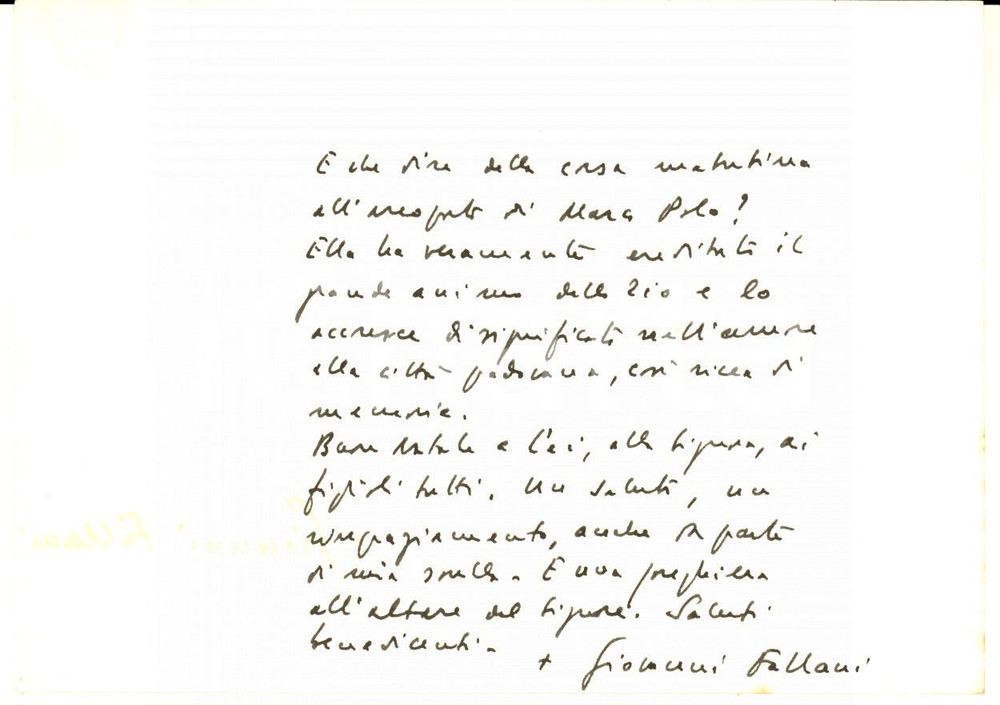 E che dire della corsa mattutina
all'areoporto di Marco Polo?
Ella ha veramente ereditato il
grande animo dello Zio e lo
accresce di significato nell'amore
alla città padovana, così ricca di
memorie.
Buon Natale a Lei, alla Signora, ai
figlioli tutti. Un saluto, un
ringraziamento, anche da parte
di mia sorella. E una preghiera
all'altare del Signore. Saluti
benedicenti.
+ Giovanni Fallani